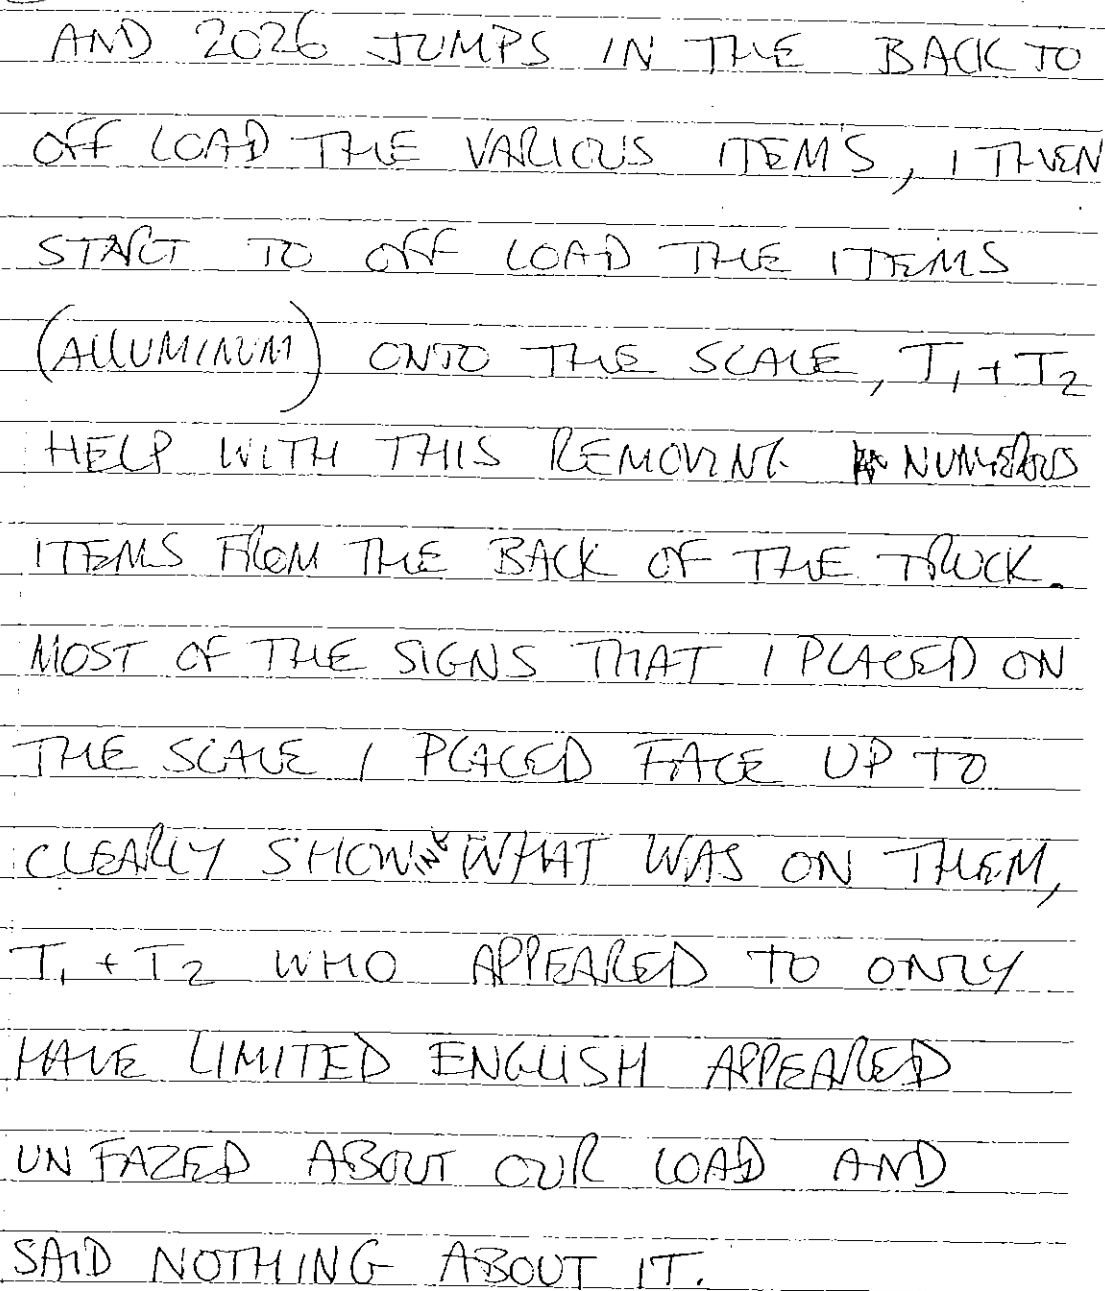 AND 2026 JUMPS IN THE BACK TO
OFF LOAD THE VARIOUS ITEMS, I THEN
START TO OFF LOAD THE ITEMS
(ALLUMINUM) ONTO THE SCALE, T1 + T2
HELP WITH THIS REMOVING NUMEROUS
ITEMS FROM THE BACK OF THE TRUCK.
MOST OF THE SIGNS THAT I PLACED ON
THE SCALE I PLACED FACE UP TO
CLEARLY SHOWING WHAT WAS ON THEM,
T1 + T2 WHO APPEARED TO ONLY
HAVE LIMITED ENGLISH APPEARED
UNFAZED ABOUT OUR LOAD AND
SAID NOTHING ABOUT IT.